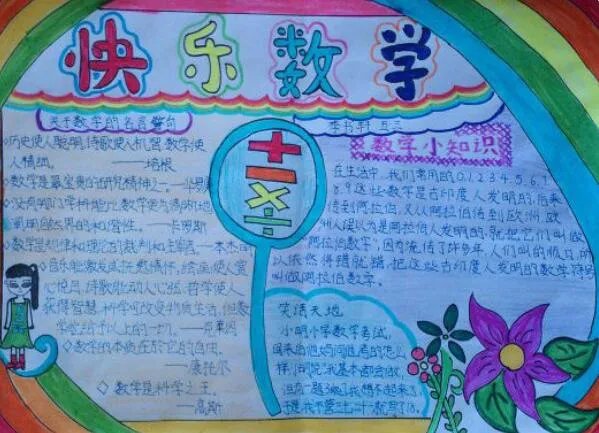 快乐数学
关于数学的名言警句
历史使人聪明,诗歌使人机智,数学使
人精细。——培根
数学是最宝贵的研究精神之一
数学是规律和理论的裁判和主宰者。——本杰明
音乐能激发或抚慰情怀,绘画使人赏
心悦目,诗歌能动人心弦,哲学使人
获得智慧,科学可改变物质生活,但数
学能给予以上的一切。——克莱因
数学的本质在於它的自由。
——康托尔
数学是科学之王。
——高斯
+-×÷
李书轩 五三
数学小知识
在生活中,我们常用的0、1、2、3、4、5、6、7、
8、9这些数字是古印度人发明的,后来
传到阿拉伯,又从阿拉伯传到欧洲,欧
洲人误以为是阿拉伯人发明的,就把它们叫做
"阿拉伯数字",因为流传了许多年,人们叫的顺口,所
以依然将错就错,把这些古印度人发明的数学符号
叫做阿拉伯数字。
笑话天地
小明小学数学考试,
回来后他妈问他考的怎么
样,
但有一题